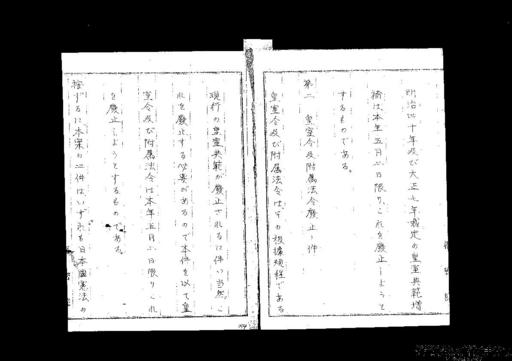 明治四十年及び大正七年裁定の皇室典範増
補は本年五月二日限り、これを廃止しようと
するものである。
第二 皇室令及附属法令廃止ノ件
皇室令及び附属法令は、その根拠規程である
現行の皇室典範が廃止されるに伴い当然、こ
れを廃止する必要があるので本件を以て皇
室令及び附属法令は本年五月二日限りこれ
を廃止しようとするものである。
按ずるに本案の二件はいずれも日本国憲法の